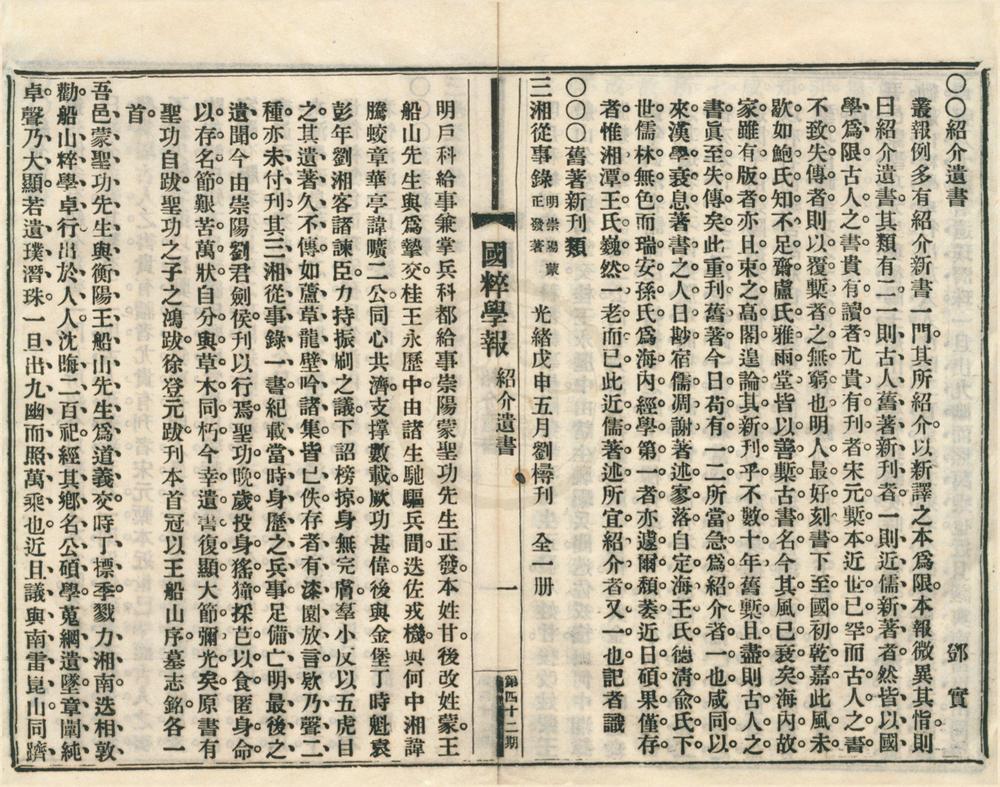 ○○紹介遺書 鄧實
叢報例多有紹介新書一門其所紹介以新譯之本爲限本報微異其恉則
曰紹介遺書其類有二一則古人舊著新刊者一則近儒新著者然皆以國
學爲限古人之書貴有讀者尤貴有刊者宋元槧本近世已罕而古人之書
不致失傳者則以覆槧者之無窮也明人最好刻書下至國初乾嘉此風未
歇如鮑氏知不足齋盧氏雅雨堂皆以善槧古書名今其風已衰矣海內故
家雖有版者亦且束之高閣遑論其新刊乎不數十年舊槧且盡則古人之
書眞至失傳矣此重刊舊著今日苟有一二所當急爲紹介者一也咸同以
來漢學衰息著書之人日尠宿儒凋謝著述寥落自定海王氏德清兪氏下
世儒林無色而瑞安孫氏爲海內經學第一者亦遽爾頹萎近日碩果僅存
者惟湘潭王氏巍然一老而已此近儒著述所宜紹介者又一也記者識
○○○舊著新刊類
三湘從事錄 明崇陽蒙正發著 光緒戊申五月劉樽刊 全一册
國粹學報 紹介遺書 一 第四十二期
明戶科給事兼掌兵科都給事崇陽蒙聖功先生正發本姓甘後改姓蒙王
船山先生與爲摯交桂王永歷中由諸生馳驅兵間迭佐戎機與何中湘諱
騰蛟章華亭諱曠二公同心共濟支撐數載厥功甚偉後與金堡丁時魁袁
彭年劉湘客諸諫臣力持振刷之議下詔榜掠身無完膚羣小反以五虎目
之其遺著久不傳如蘆草龍壁吟諸集皆已佚存者有漆園放言欵乃聲二
種亦未付刊其三湘從事錄一書紀載當時身歷之兵事足備亡明最後之
遺聞今由崇陽劉君劍侯刊以行焉聖功晚歲投身猺獞採芑以食匿身命
以存名節艱苦萬狀自分與草木同朽今幸遺書復顯大節彌光矣原書有
聖功自跋聖功之子之鴻跋徐登元跋刊本首冠以王船山序墓志銘各一
首
吾邑蒙聖功先生與衡陽王船山先生爲道義交時丁摽季戮力湘南迭相敦
勸船山粹學卓行出於人人沈晦二百祀經其鄉名公碩學蒐網遺墜章闡純
卓聲乃大顯若遺璞潛珠一旦出九幽而照萬乘也近且議與南雷崑山同躋